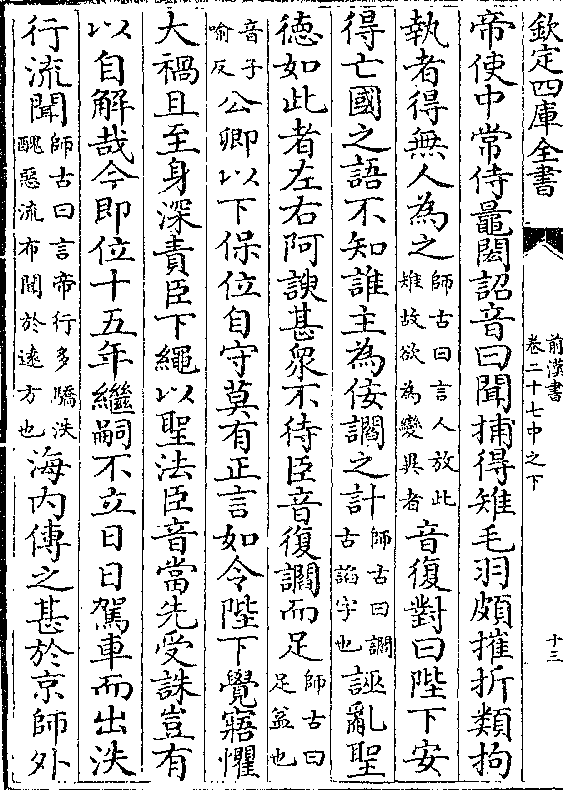 欽定四庫全書
前漢書
卷二十七中之下
十三
帝使中常侍鼂閎詔音曰聞捕得雉毛羽頗摧折類拘
執者得無人為之師古曰言人放此雉故欲為變異者音復對曰陛下安
得亡國之語不知誰主為佞讇之計師古曰讇古諂字也誣亂聖
徳如此者左右阿諛甚衆不待臣音復讇而足師古曰足益也
音子喻反公卿以下保位自守莫有正言如令陛下覺寤懼
大禍且至身深責臣下繩以聖法臣音當先受誅豈有
以自解哉今即位十五年繼嗣不立日日駕車而出泆
行流聞師古曰言帝行多驕泆醜惡流布聞於逺方也海内傳之甚於京師外